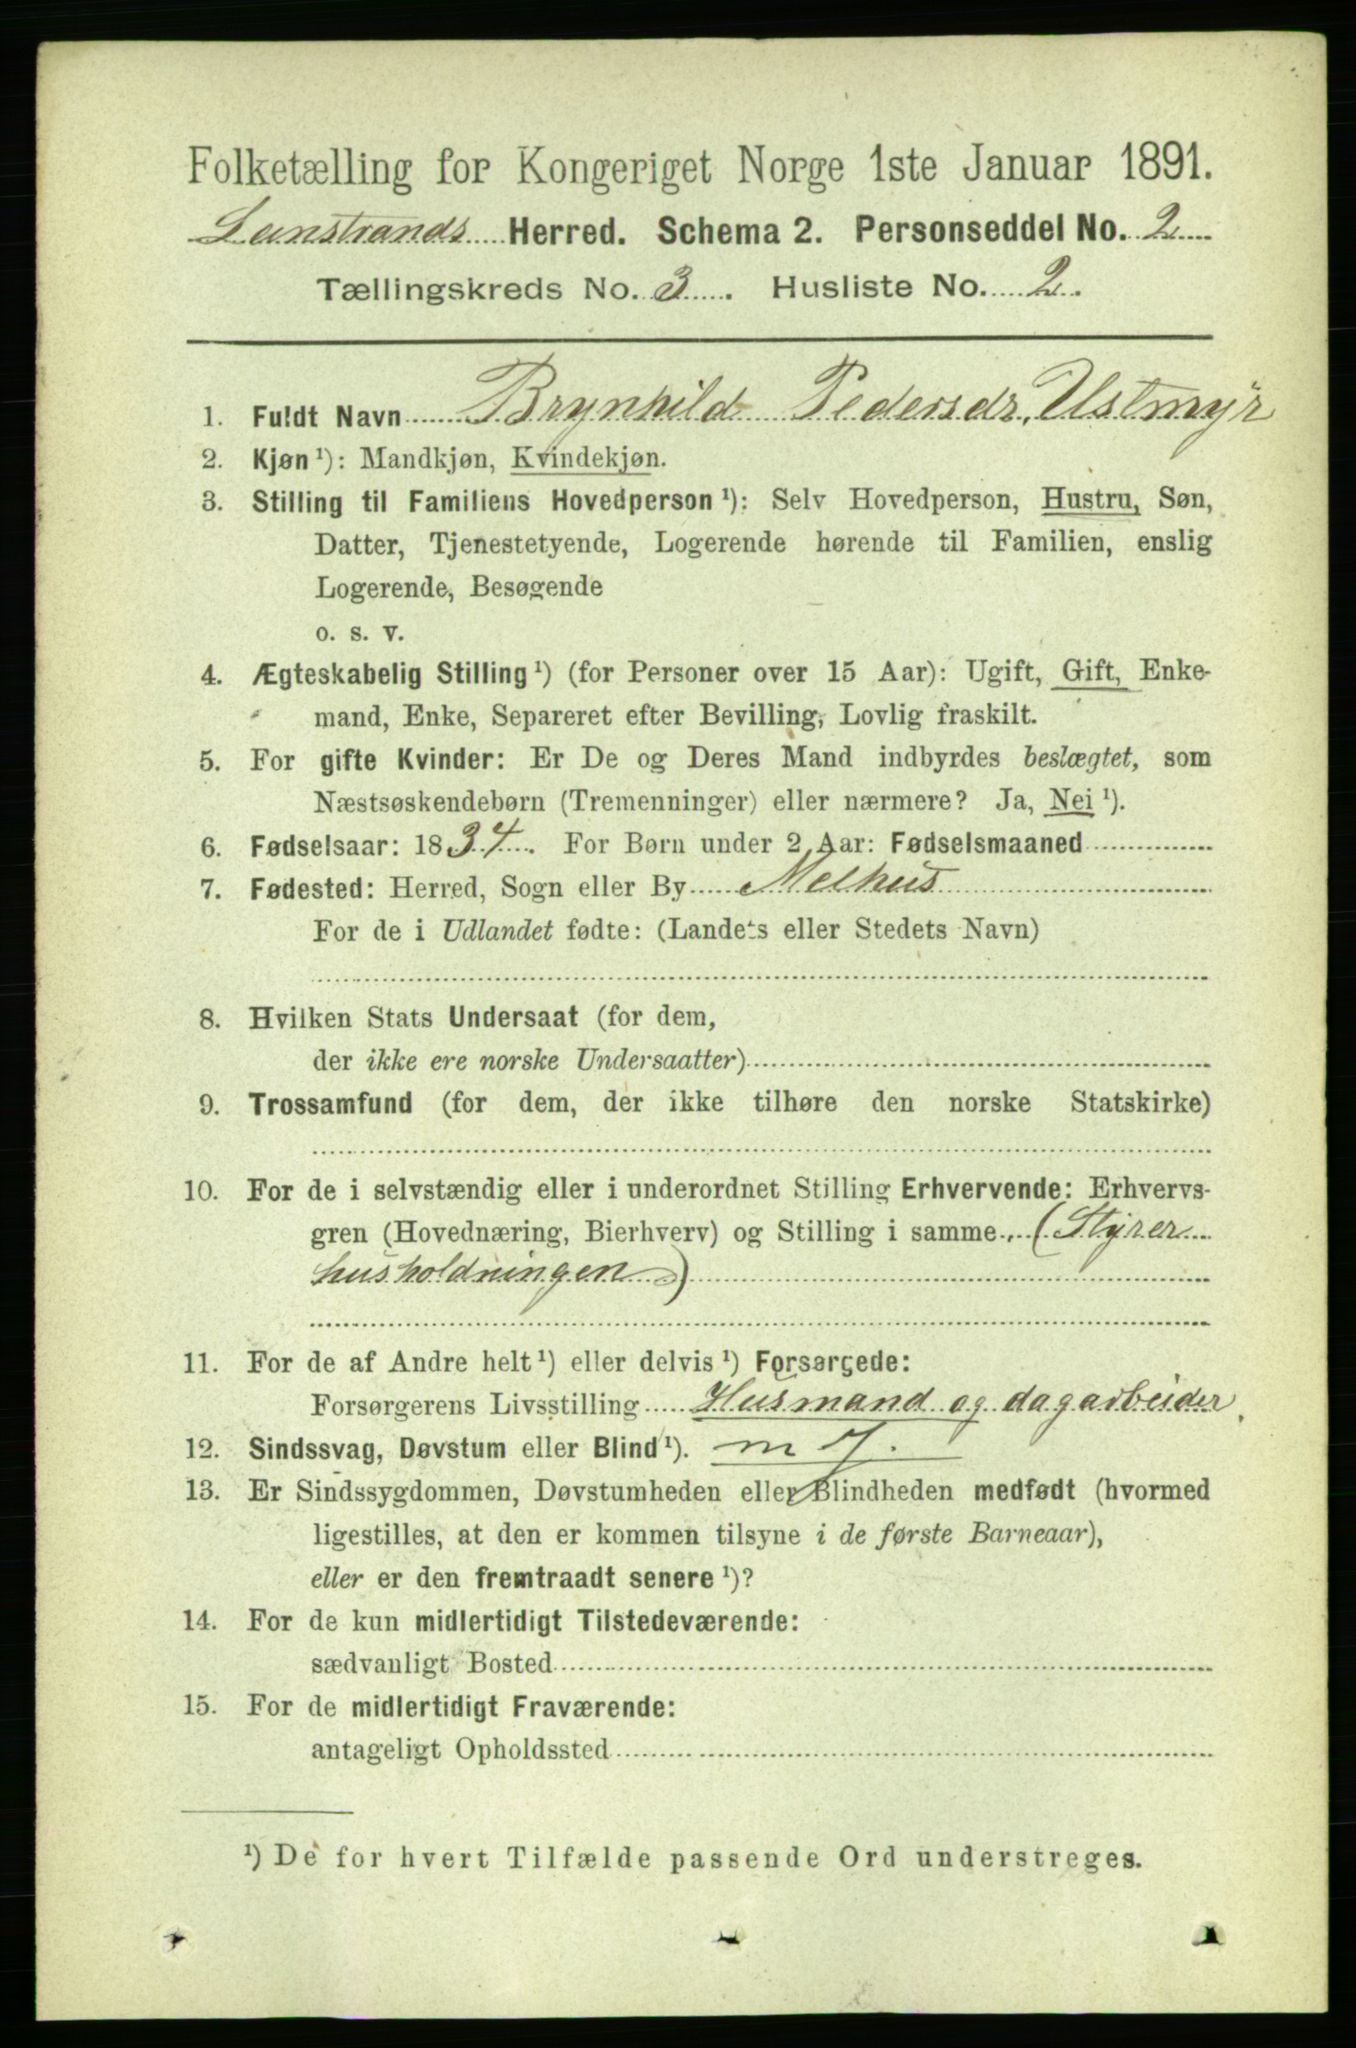 Folketælling for Kongeriget Norge 1ste Januar 1891.
Leinstrands Herred. Schema 2. Personseddel No. 2
Tællingskreds No. 3. Husliste No. 2.
1. Fuldt Navn Brynhild Pedersdr. Ustmyr
2. Kjøn ¹): Mandkjøn, Kvindekjøn.
3. Stilling til Familiens Hovedperson ¹): Selv Hovedperson, Hustru, Søn,
Datter, Tjenestetyende, Logerende hørende til Familien, enslig
Logerende, Besøgende
o. s. v.
4. Ægteskabelig Stilling ¹) (for Personer over 15 Aar): Ugift, Gift, Enke-
mand, Enke, Separeret efter Bevilling, Lovlig fraskilt.
5. For gifte Kvinder: Er De og Deres Mand indbyrdes beslægtet, som
Næstsøskendebørn (Tremenninger) eller nærmere? Ja, Nei ¹).
6. Fødselsaar: 1834. For Børn under 2 Aar: Fødselsmaaned
7. Fødested: Herred, Sogn eller By Melhus
For de i Udlandet fødte: (Landets eller Stedets Navn)
8. Hvilken Stats Undersaat (for dem,
der ikke ere norske Undersaatter)
9. Trossamfund (for dem, der ikke tilhøre den norske Statskirke)
10. For de i selvstændig eller i underordnet Stilling Erhvervende: Erhvervs-
gren (Hovednæring, Bierhverv) og Stilling i samme. (Styrer
husholdningen)
11. For de af Andre helt ¹) eller delvis ¹) Forsørgede:
Forsørgerens Livsstilling Husmand og dagarbeider
12. Sindssvag, Døvstum eller Blind ¹).
13. Er Sindssygdommen, Døvstumheden eller Blindheden medfødt (hvormed
ligestilles, at den er kommen tilsyne i de første Barneaar),
eller er den fremtraadt senere ¹)?
14. For de kun midlertidigt Tilstedeværende:
sædvanligt Bosted
15. For de midlertidigt Fraværende:
antageligt Opholdssted
¹) De for hvert Tilfælde passende Ord understreges.